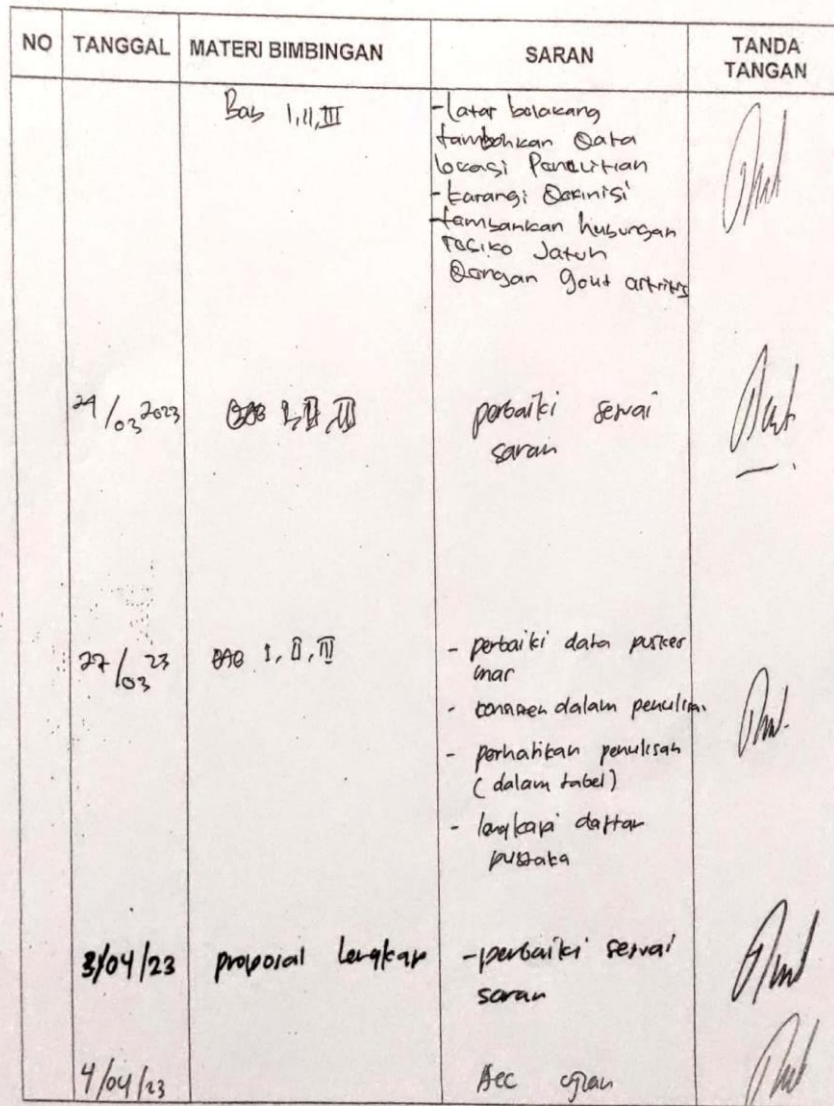 NO TANGGAL MATERI BIMBINGAN SARAN TANDA TANGAN
Bab I, II, III
- latar belakang
tambahkan Data
lokasi Penelitian
- kurangi Definisi
- tambahkan hubungan
resiko Jatuh
Dengan gout artritis
24/03 2023 BAB I, II, III perbaiki sesuai
saran
27/03 23 BAB I, II, III - perbaiki data puskes
mas
- dalam penulisan
- perhatikan penulisan
(dalam tabel)
- lengkapi daftar
pustaka
3/04/23 proposal lengkap - perbaiki sesuai
saran
4/04/23 Acc ujian